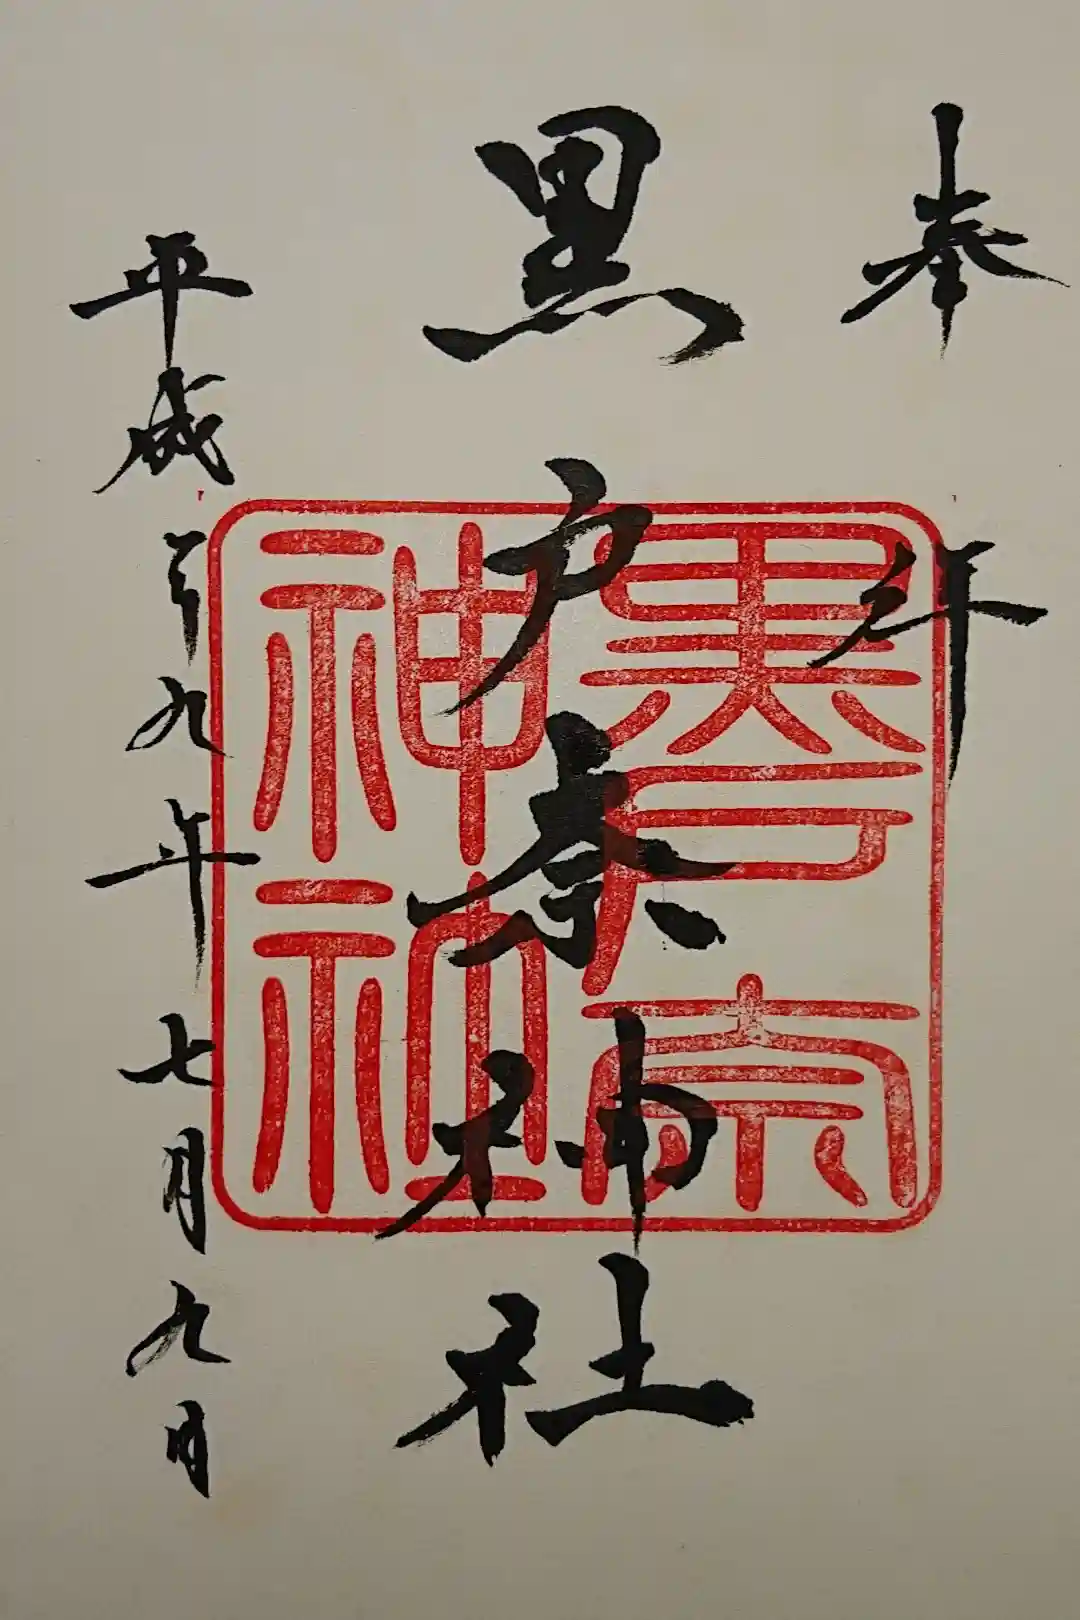 奉拝
黒戸奈神社
平成二十九年七月九日
黒戸奈
神社